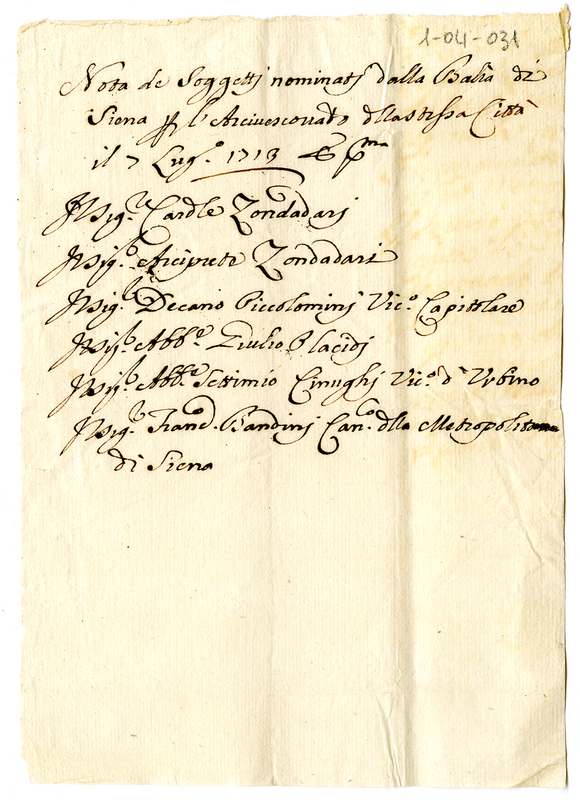 1-04-031
Nota de Soggettj nominatj dalla Balìa di
Siena p l'Arcivescovado dlla stessa Città
il 7 Lug.o 1713
Il Sig.r Cardle Zondadarj
Il Sig.r Arciprete Zondadari
Il Sig.r Decano Piccolominj Vic.o Capitolare
Il Sig.r Abb.e Giulio Placidj
Il Sig.r Abb.e Settimio Cinughj Vic.o d'Urbino
Il Sig.r Franc.o Bandinj Can.co dlla Metropolitana
di Siena